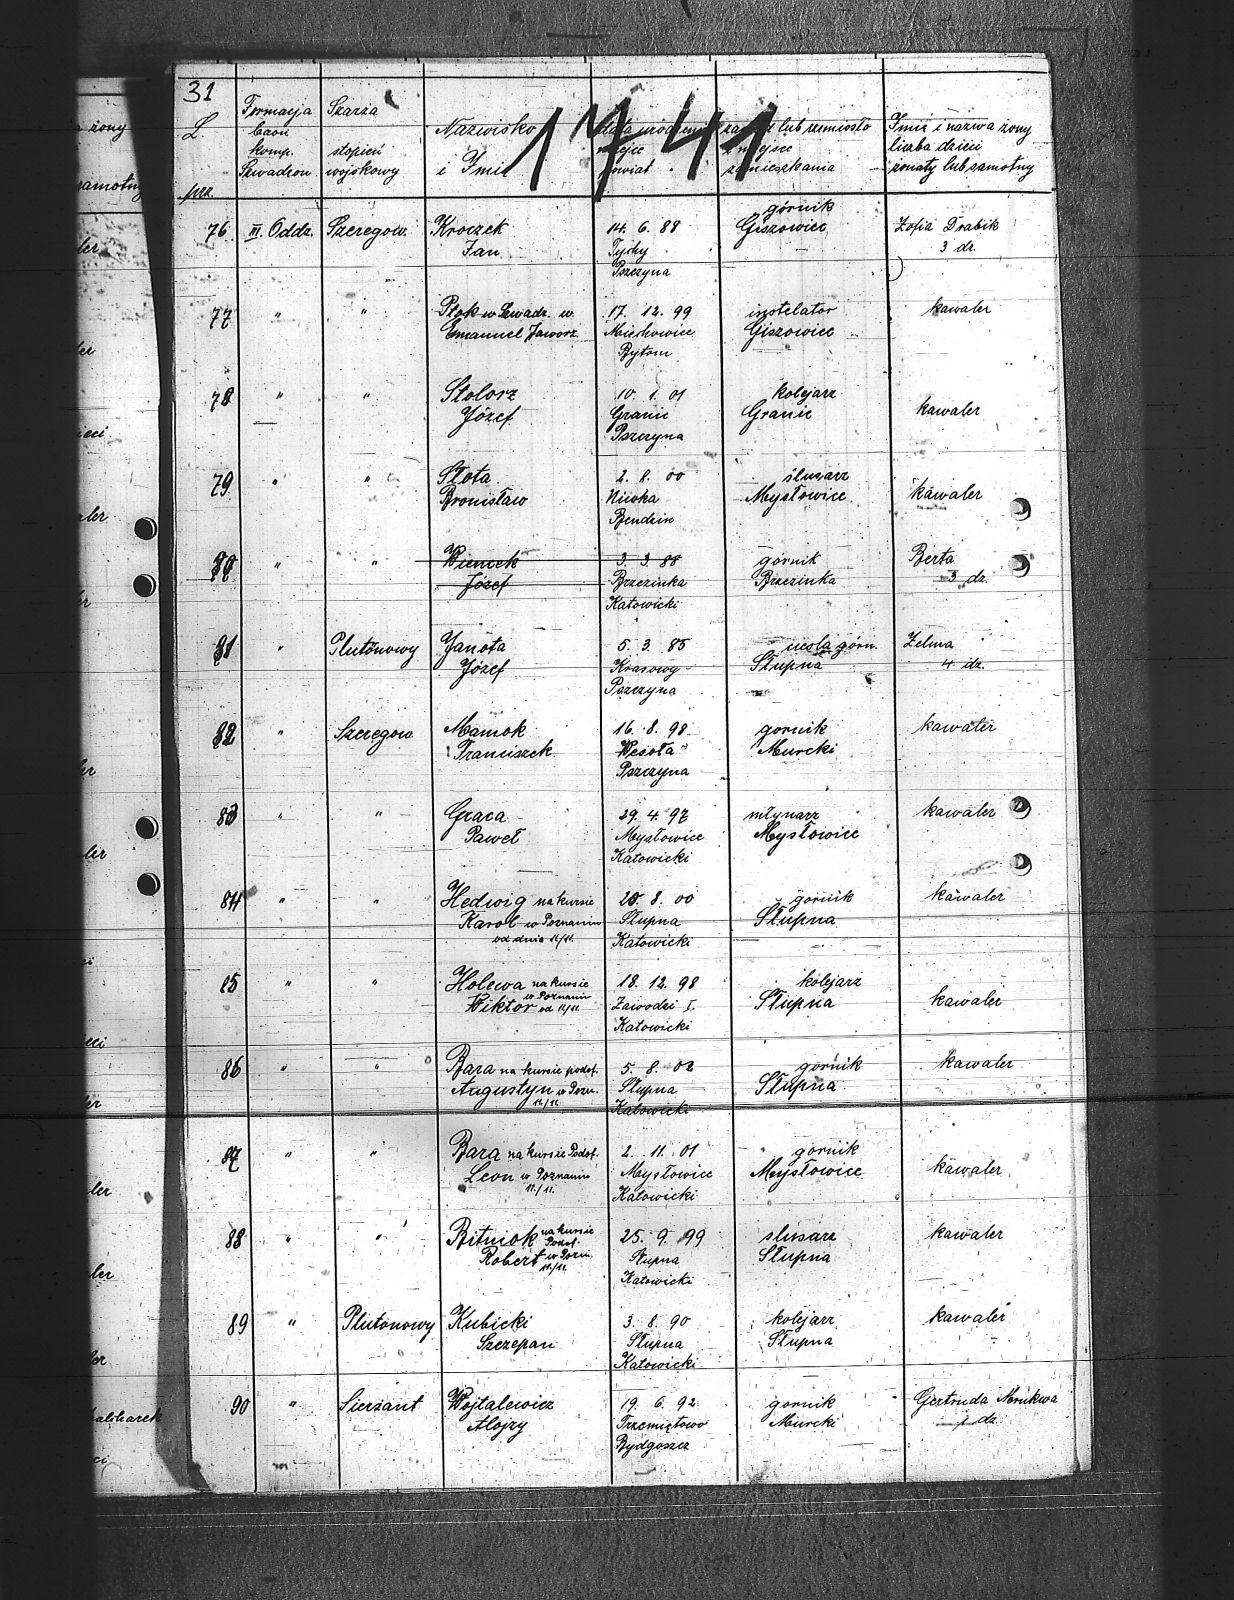 31
1741
L. prz.
Formacja baon komp. Szwadron
Szarża stopień wojskowy
Nazwisko i Imię
Data urodzenia miejsce powiat
zawód lub rzemiosło i miejsce zamieszkania
Imię i nazwa żony liczba dzieci żonaty lub samotny
76 III. Oddz. Szeregow. Kroczek 14. 6. 88 górnik Zofia Drabik
Jan Tychy Giszowiec 3 dz.
Pszczyna
77 " " Ptok w Szwadr. w 17. 12. 99 instelator kawaler
Emanuel Jaworz. Miechowice Giszowiec
Bytom
78 " " Stolorz 10. 1. 01 kolejarz
Józef Granic Granic kawaler
Pszczyna
79 " " Słota 2. 8. 00 ślusarz
Bronisław Niwka Mysłowice kawaler
Bendzin
80 " " Józef 3. 3. 88 górnik Berta
Brzezinka Brzezinka 3 dz.
Katowicki
81 " Plutonowy Janota 5. 3. 85 górn. Zelma
Józef Krasowy Słupna 4 dz.
Pszczyna
82 " Szeregow Mamok 16. 8. 98 gornik kawaler
Franciszek Wesoła Murcki
Pszczyna
83 " " Graca 29. 4. 97 młynarz kawaler
Paweł Mysłowice Mysłowice
Katowicki
84 " " Hedwig na kursie 20. 8. 00 gornik kawaler
Karol w Poznaniu Słupna Słupna
od dnia 11/11. Katowicki
85 " " Holewa na kursie 18. 12. 98 kolejarz
Wiktor w Poznaniu od 11/11. Zawodzi I. Słupna kawaler
Katowicki
86 " " Bara na kursie podof. 5. 8. 02 gornik kawaler
Augustyn w Pozn. Słupna Słupna
11/11. Katowicki
87 " " Bara na kursie Podof. 2. 11. 01 gornik
Leon w Poznaniu Mysłowice Mysłowice kawaler
11/11. Katowicki
88 " " Bitniok na kursie Podof. 25. 9. 99 slusarz kawaler
Robert w Pozn. 11/11. Słupna Słupna
Katowicki
89 " Plutonowy Kubicki 3. 8. 90 kolejarz kawaler
Szczepan Słupna Słupna
Katowicki
90 " Sierzant Wojtalewicz 19. 6. 92 gornik Gertruda Mrukwa
Alojzy Trzemiętowo Murcki 1 dz.
Bydgoszcz